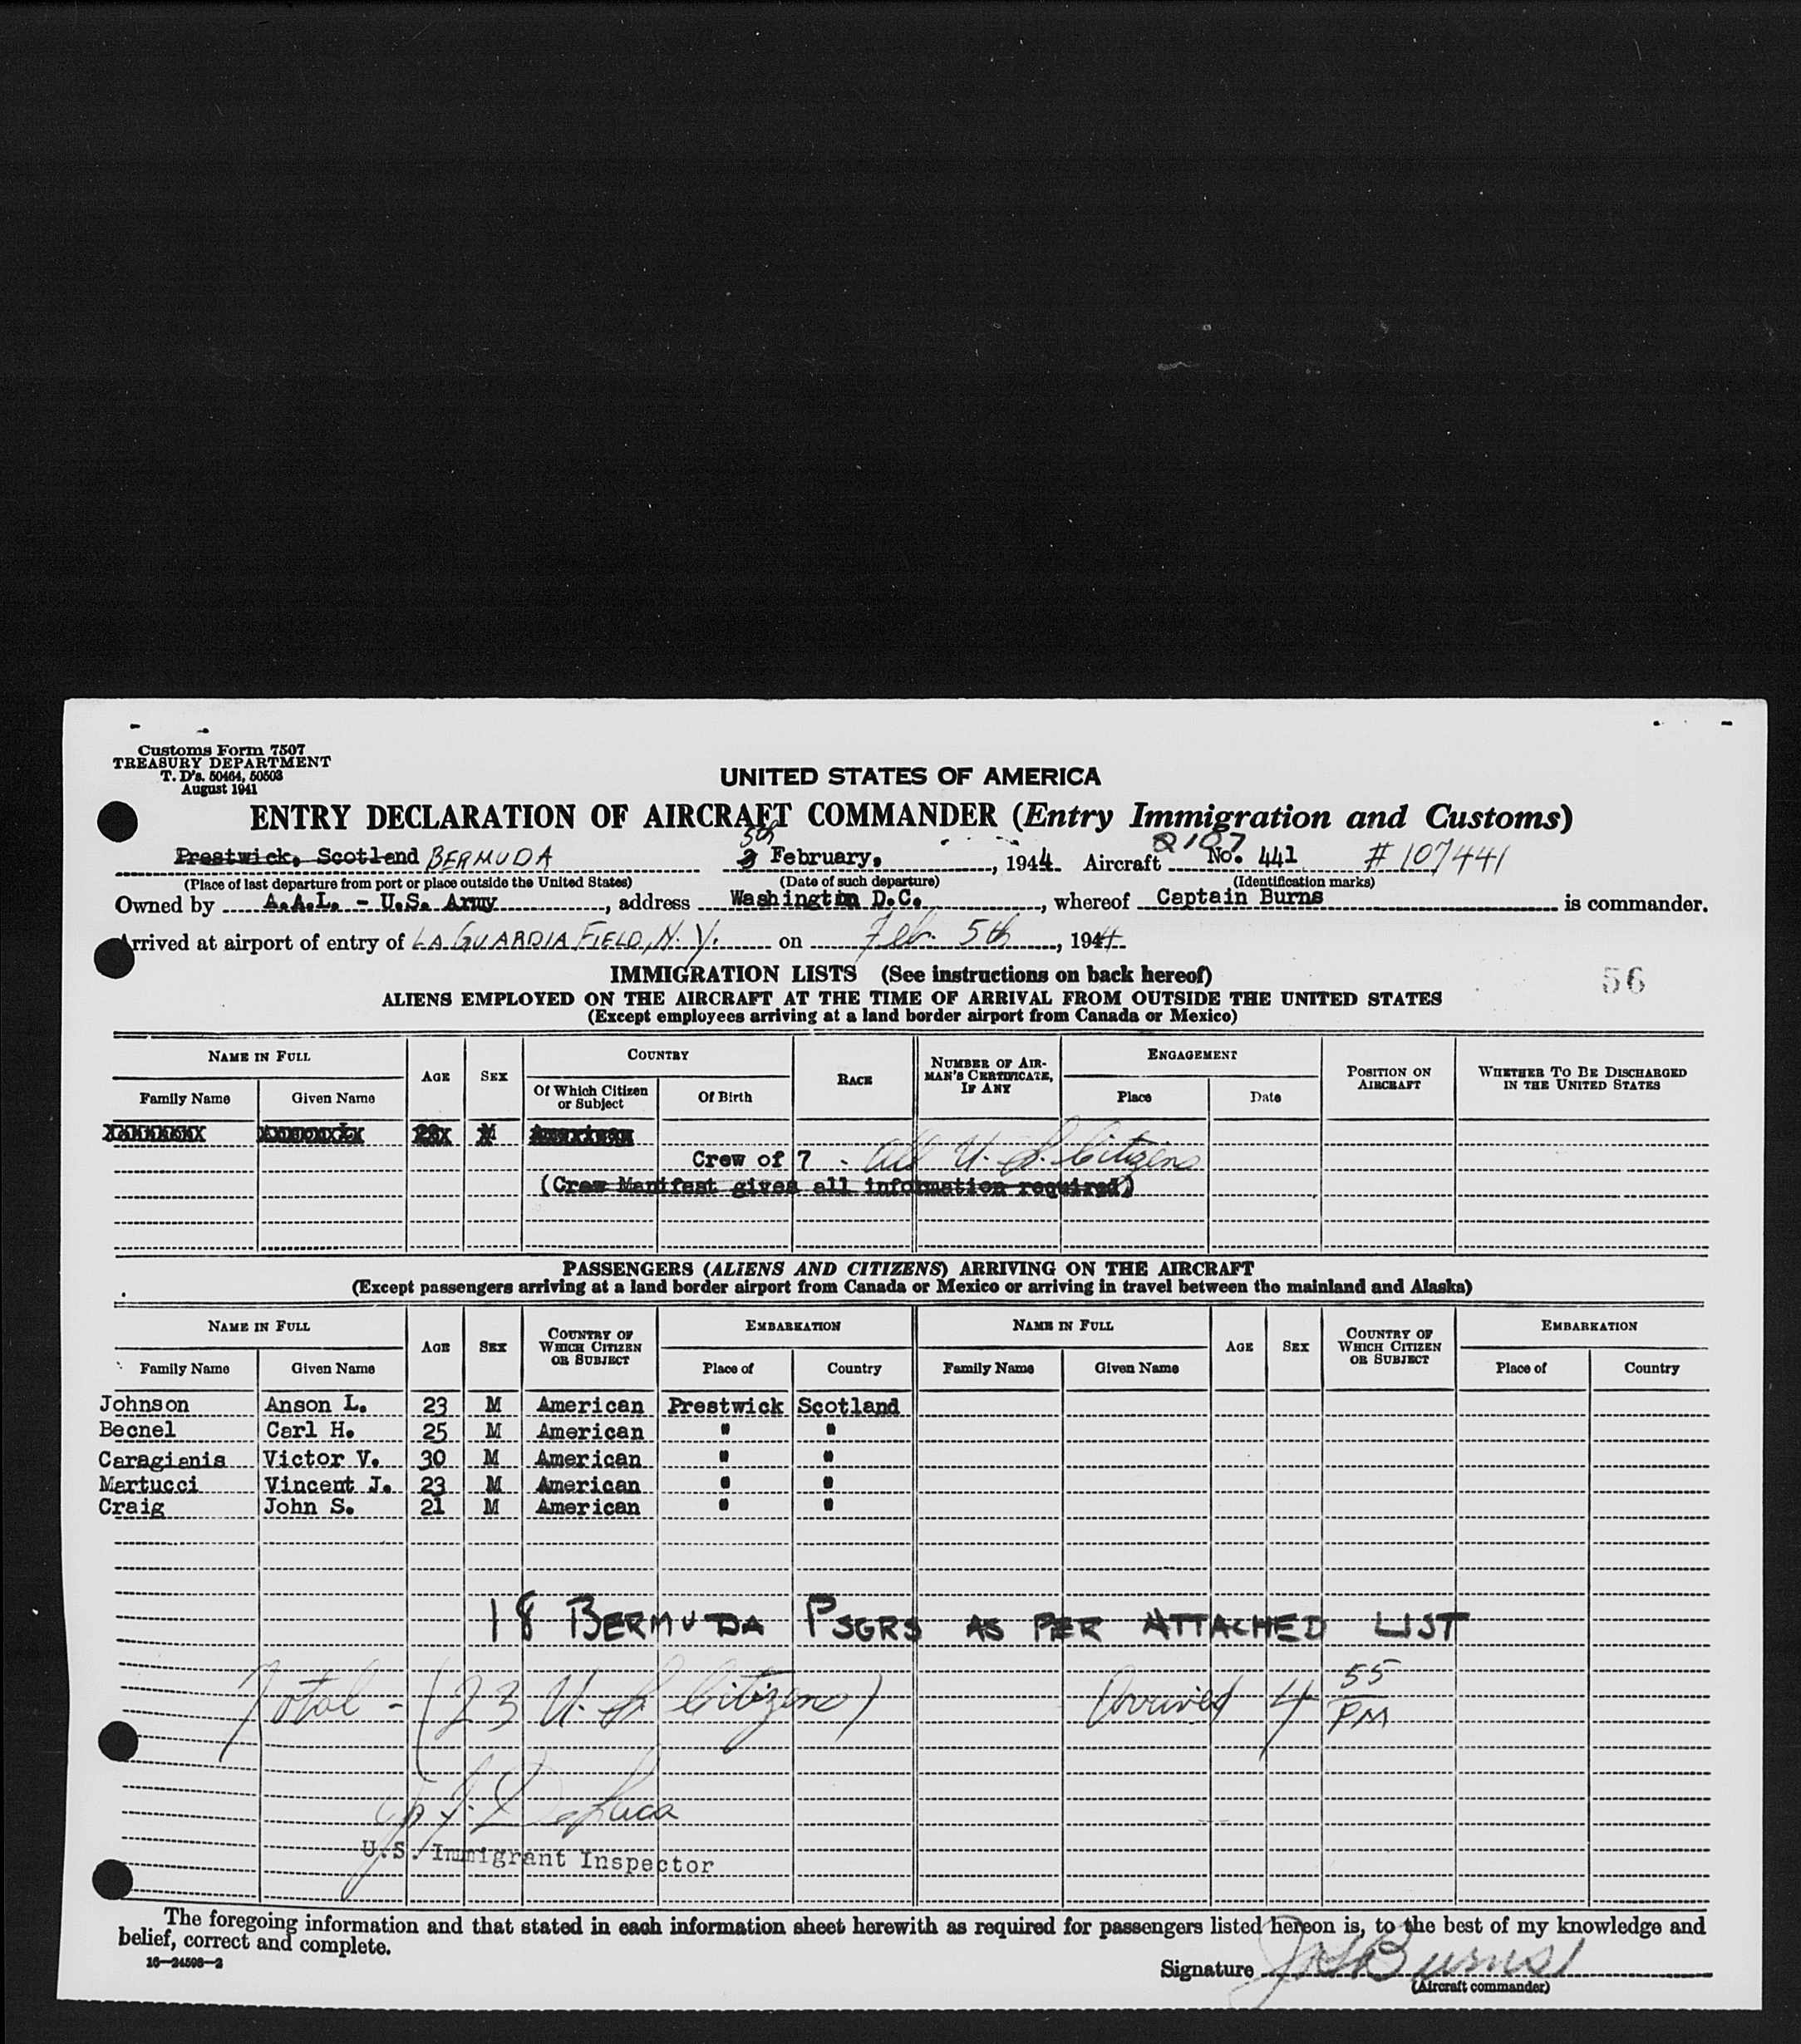 Customs Form 7507
TREASURY DEPARTMENT
T. D's. 50464, 50503
August 1941
UNITED STATES OF AMERICA
ENTRY DECLARATION OF AIRCRAFT COMMANDER (Entry Immigration and Customs)
5th Q107
Prestwick, Scotland BERMUDA 3 February, , 1944 Aircraft No. 441 # 107441
(Place of last departure from port or place outside the United States) (Date of such departure) (Identification marks)
Owned by A.A.L. - U.S. Army , address Washington D.C. , whereof Captain Burns is commander.
Arrived at airport of entry of LA GUARDIA FIELD, N.Y. on Feb. 5th , 1944
IMMIGRATION LISTS (See instructions on back hereof) 56
ALIENS EMPLOYED ON THE AIRCRAFT AT THE TIME OF ARRIVAL FROM OUTSIDE THE UNITED STATES
(Except employees arriving at a land border airport from Canada or Mexico)
NAME IN FULL AGE SEX COUNTRY RACE NUMBER OF AIRMAN'S CERTIFICATE, IF ANY ENGAGEMENT POSITION ON AIRCRAFT WHETHER TO BE DISCHARGED IN THE UNITED STATES
Family Name Given Name Of Which Citizen or Subject Of Birth Place Date
Crew of 7 - All U. S. Citizens
(Crew Manifest gives all information required)
PASSENGERS (ALIENS AND CITIZENS) ARRIVING ON THE AIRCRAFT
(Except passengers arriving at a land border airport from Canada or Mexico or arriving in travel between the mainland and Alaska)
NAME IN FULL AGE SEX COUNTRY OF WHICH CITIZEN OR SUBJECT EMBARKATION NAME IN FULL AGE SEX COUNTRY OF WHICH CITIZEN OR SUBJECT EMBARKATION
Family Name Given Name Place of Country Family Name Given Name Place of Country
Johnson Anson L. 23 M American Prestwick Scotland
Becnel Carl H. 25 M American " "
Caragianis Victor V. 30 M American " "
Martucci Vincent J. 23 M American " "
Craig John S. 21 M American " "
18 BERMUDA PSGRS AS PER ATTACHED LIST
Total - (23 U. S. Citizens) Arrived 4 55 PM
DeLuca
U.S. Immigrant Inspector
The foregoing information and that stated in each information sheet herewith as required for passengers listed hereon is, to the best of my knowledge and
belief, correct and complete.
16—24508-2
Signature Burns
(Aircraft commander)